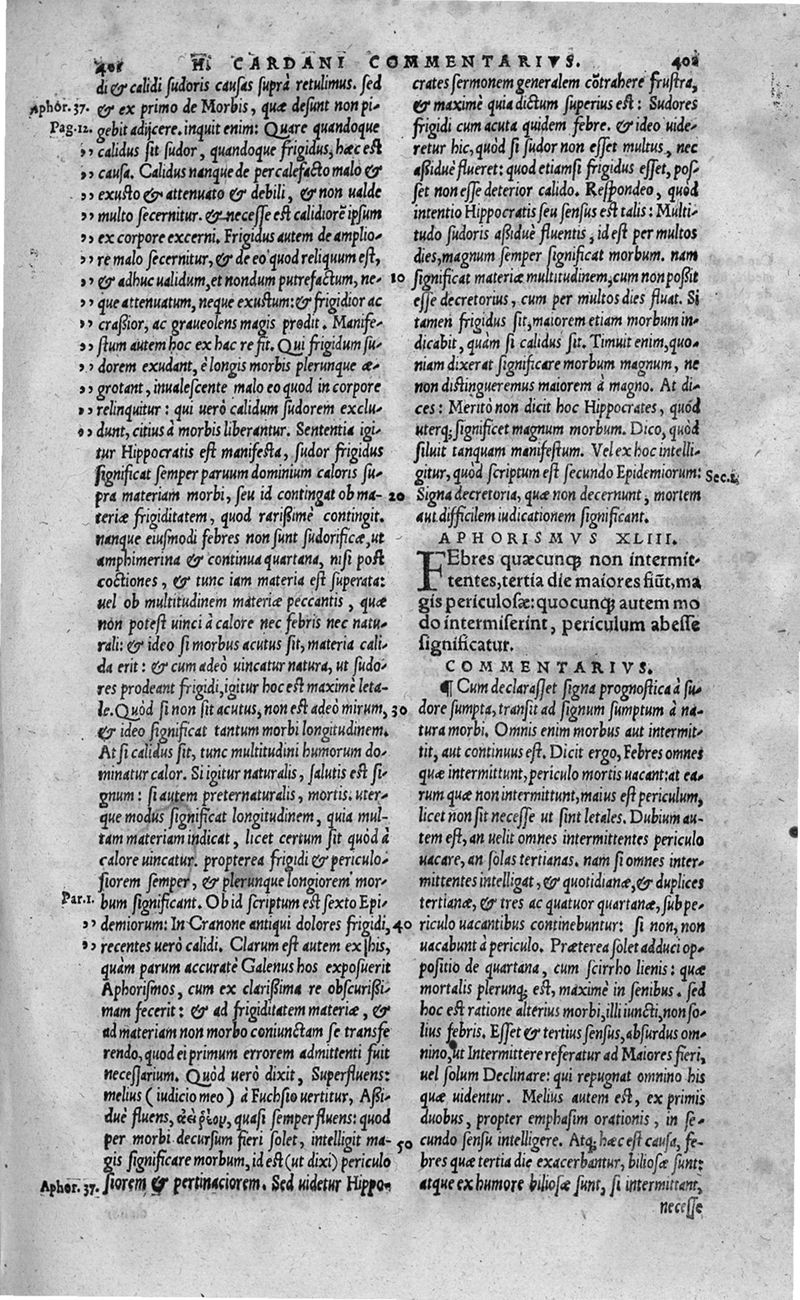 401 H. CARDANI COMMENTARIVS. 402
di & calidi sudoris causas suprà retulimus. sed
Aphor. 37. & ex primo de Morbis, quæ desunt non pi-
Pag. 12. gebit adijcere. inquit enim: Quare quandoque
,, calidus sit sudor, quandoque frigidus, hæc est
,, causa. Calidus nanque de percalefacto malo &
,, exusto & attenuato & debili, & non ualde
,, multo secernitur. & necesse est calidiorē ipsum
,, ex corpore excerni. Frigidus autem de amplio-
,, re malo secernitur, & de eo quod reliquum est,
,, & adhuc ualidum, et nondum putrefactum, ne-
,, que attenuatum, neque exustum: & frigidior ac
,, crassior, ac graueolens magis prodit. Manife-
,, stum autem hoc ex hac re fit. Qui frigidum su-
,, dorem exudant, è longis morbis plerunque æ-
,, grotant, inualescente malo eo quod in corpore
,, relinquitur: qui uerò calidum sudorem exclu-
,, dunt, citius à morbis liberantur. Sententia igi-
tur Hippocratis est manifesta, sudor frigidus
significat semper paruum dominium caloris su-
pra materiam morbi, seu id contingat ob ma-
teriæ frigiditatem, quod rarißimè contingit.
nanque eiusmodi febres non sunt sudorificæ, ut
amphimerina & continua quartana, nisi post
coctiones, & tunc iam materia est superata:
uel ob multitudinem materiæ peccantis, quæ
non potest uinci à calore nec febris nec natu-
rali: & ideo si morbus acutus sit, materia cali-
da erit: & cum adeò uincatur natura, ut sudo-
res prodeant frigidi, igitur hoc est maximè leta-
le. Quòd si non sit acutus, non est adeò mirum,
& ideo significat tantum morbi longitudinem.
At si calidus sit, tunc multitudini humorum do-
minatur calor. Si igitur naturalis, salutis est si-
gnum: si autem preternaturalis, mortis. uter-
que modus significat longitudinem, quia mul-
tam materiam indicat, licet certum sit quòd à
calore uincatur. propterea frigidi & periculo-
siorem semper, & plerunque longiorem mor-
Par. 1. bum significant. Ob id scriptum est sexto Epi-
,, demiorum: In Cranone antiqui dolores frigidi,
,, recentes uerò calidi. Clarum est autem ex ijs,
quàm parum accuratè Galenus hos exposuerit
Aphorismos, cum ex clarißima re obscurißi-
mam fecerit: & ad frigiditatem materiæ, &
ad materiam non morbo coniunctam se transfe
rendo, quod ei primum errorem admittenti fuit
necessarium. Quòd uerò dixit, Superfluens:
melius (iudicio meo) à Fuchsio uertitur, Aßi-
duè fluens, quasi semper fluens: quod
per morbi decursum fieri solet, intelligit ma-
gis significare morbum, id est (ut dixi) periculo
Aphor. 37. siorem & pertinaciorem. Sed uidetur Hippo-
crates sermonem generalem cōtrahere frustra,
& maximè quia dictum superius est: Sudores
frigidi cum acuta quidem febre. & ideo uide-
retur hic, quòd si sudor non esset multus, nec
aßiduè flueret: quod etiamsi frigidus esset, pos-
set non esse deterior calido. Respondeo, quòd
intentio Hippocratis seu sensus est talis: Multi-
tudo sudoris aßiduè fluentis, id est per multos
dies, magnum semper significat morbum. nam
10 significat materiæ multitudinem, cum non poßit
esse decretorius, cum per multos dies fluat. Si
tamen frigidus sit, maiorem etiam morbum in-
dicabit, quàm si calidus sit. Timuit enim, quo-
niam dixerat significare morbum magnum, ne
non distingueremus maiorem à magno. At di-
ces: Meritò non dicit hoc Hippocrates, quòd
uterq; significet magnum morbum. Dico, quòd
siluit tanquam manifestum. Vel ex hoc intelli-
gitur, quòd scriptum est secundo Epidemiorum: Sec. 1.
20 Signa decretoria, quæ non decernunt, mortem
aut difficilem iudicationem significant.
APHORISMVS XLIII.
FEbres quæcunq; non intermit-
tentes, tertia die maiores fiūt, ma
gis periculosæ: quocunq; autem mo
do intermiserint, periculum abesse
significatur.
COMMENTARIVS.
¶ Cum declarasset signa prognostica à su-
30 dore sumpta, transit ad signum sumptum à na-
tura morbi. Omnis enim morbus aut intermit-
tit, aut continuus est. Dicit ergo, Febres omnes
quæ intermittunt, periculo mortis uacant: at ea-
rum quæ non intermittunt, maius est periculum,
licet non sit necesse ut sint letales. Dubium au-
tem est, an uelit omnes intermittentes periculo
uacare, an solas tertianas. nam si omnes inter-
mittentes intelligat, & quotidianæ, & duplices
tertianæ, & tres ac quatuor quartanæ, sub pe-
40 riculo uacantibus continebuntur: si non, non
uacabunt à periculo. Præterea solet adduci op-
positio de quartana, cum scirrho lienis: quæ
mortalis plerunq; est, maximè in senibus. sed
hoc est ratione alterius morbi, illi iuncti, non so-
lius febris. Esset & tertius sensus, absurdus om-
nino, ut Intermittere referatur ad Maiores fieri,
uel solum Declinare: qui repugnat omnino his
quæ uidentur. Melius autem est, ex primis
duobus, propter emphasim orationis, in se-
50 cundo sensu intelligere. Atq; hæc est causa, fe-
bres quæ tertia die exacerbantur, biliosæ sunt:
atque ex humore biliosæ sunt, si intermittant,
necesse